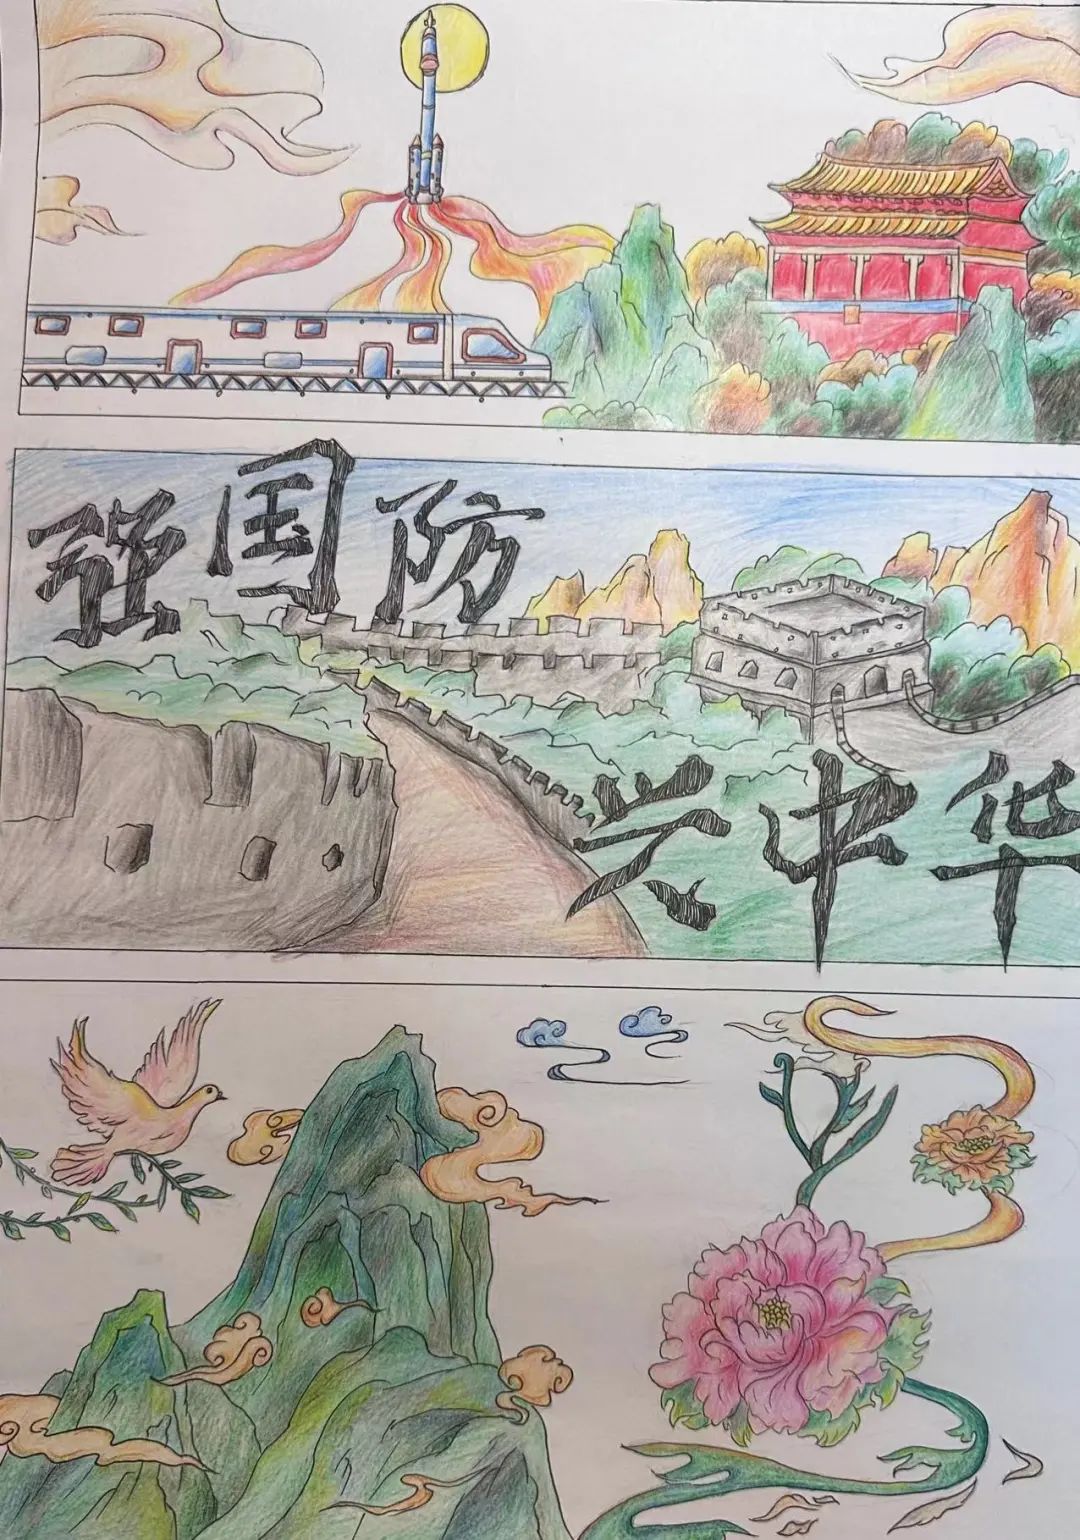 强国防
兴中华